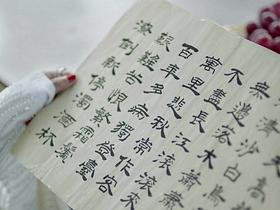 清沙白鳥
無邊落木蕭
不盡長江滾滾來
萬里悲秋常作客
百年多病獨登臺
艱難苦恨繁霜鬢
潦倒新停濁酒杯